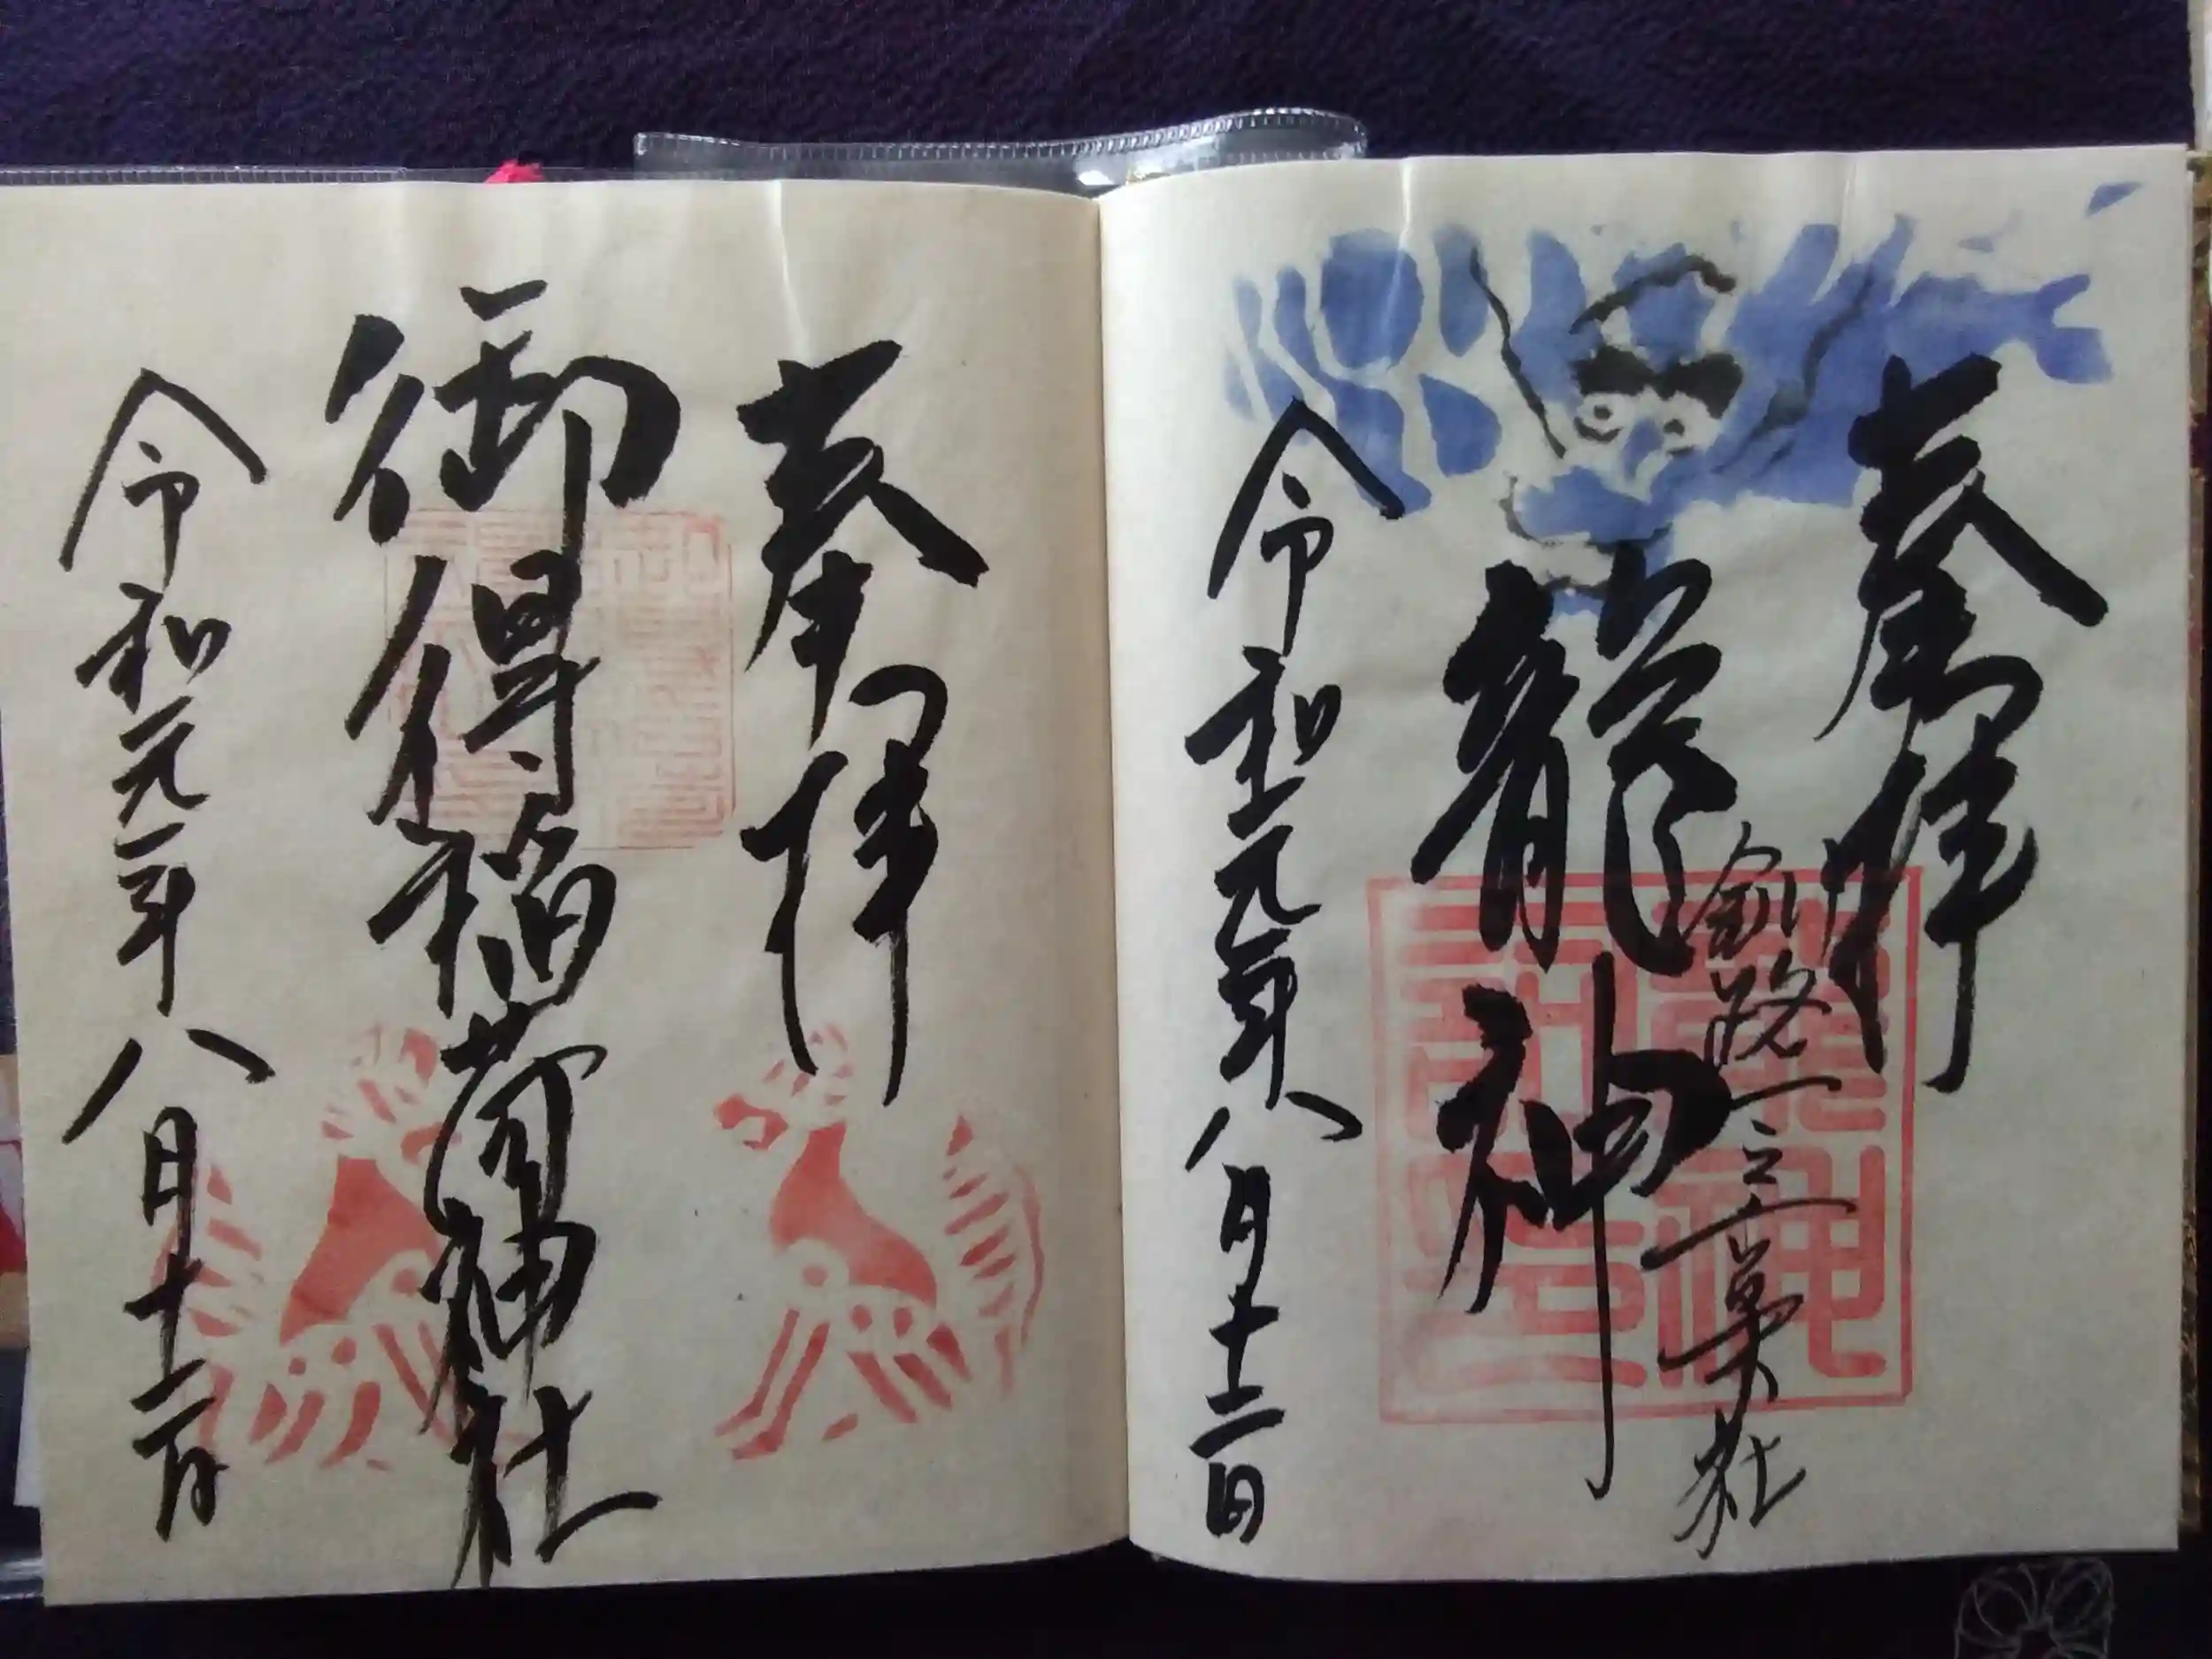 奉拝
釧路一
龍神
令和元年八月十二日
奉拝
御得稲荷神社
令和元年八月十二日